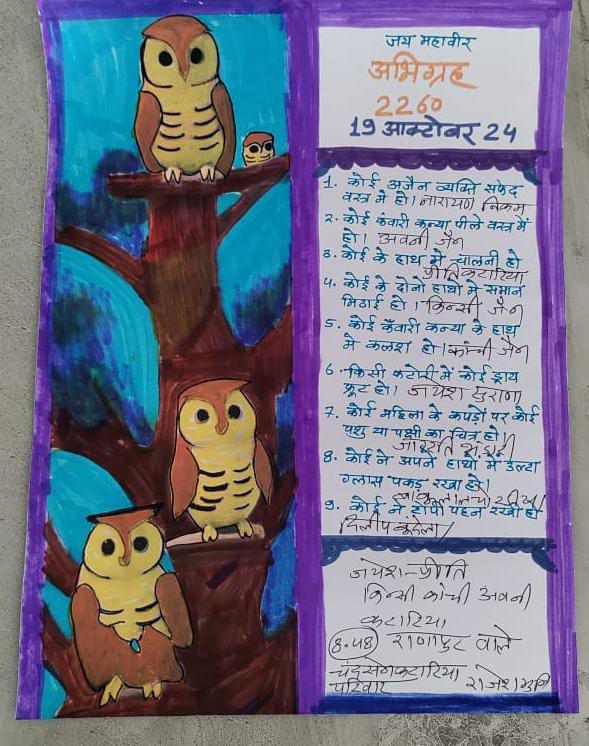 जय महावीर
अभिग्रह
2260
19 आक्टोबर 24
1. कोई अजैन व्यक्ति सफेद
वस्त्र में हो। नारायण निकम
2. कोई कंवारी कन्या पीले वस्त्र में
हो। अवनी जैन
3. कोई के हाथ में चालनी हो
प्रीति कटारिया
4. कोई के दोनो हाथो मे समान
मिठाई हो। किन्सी जैन
5. कोई कँवारी कन्या के हाथ
मे कलश हो। कांची जैन
6. किसी कटोरी में कोई ड्राय
फ्रूट हो। जयेश सुराणा
7. कोई महिला के कपड़ों पर कोई
पशु या पक्षी का चित्र हो।
8. कोई ने अपने हाथो में उल्टा
ग्लास पकड़ रखा हो।
9. कोई ने टोपी पहन रखी हो
दिलीप
जयेश-प्रीति
किन्सी कांची अवनी
कटारिया
8.48 राणापुर वाले
चंद्रसेन कटारिया
परिवार राजेश मुनि